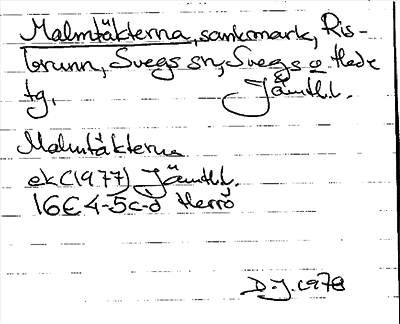 Malmtäkterna, sankmark, Ris-
brunn, Svegs sn, Svegs o Hede
tg, Jämtl.l.
Malmtäkterna
ek (1977) Jämtl.l.
16E 4-5c-d Herrö
D.J. 1978